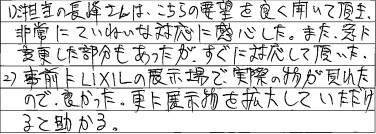 1)担当の長峰さんは、こちらの要望を良く聞いて頂き、
非常にていねいな対応に感心した。また、急に
変更した部分もあったが、すぐに対応して頂いた。
2)事前にLIXILの展示場で実際の物が見れた
ので、良かった。更に展示物を拡大していただけ
ると助かる。